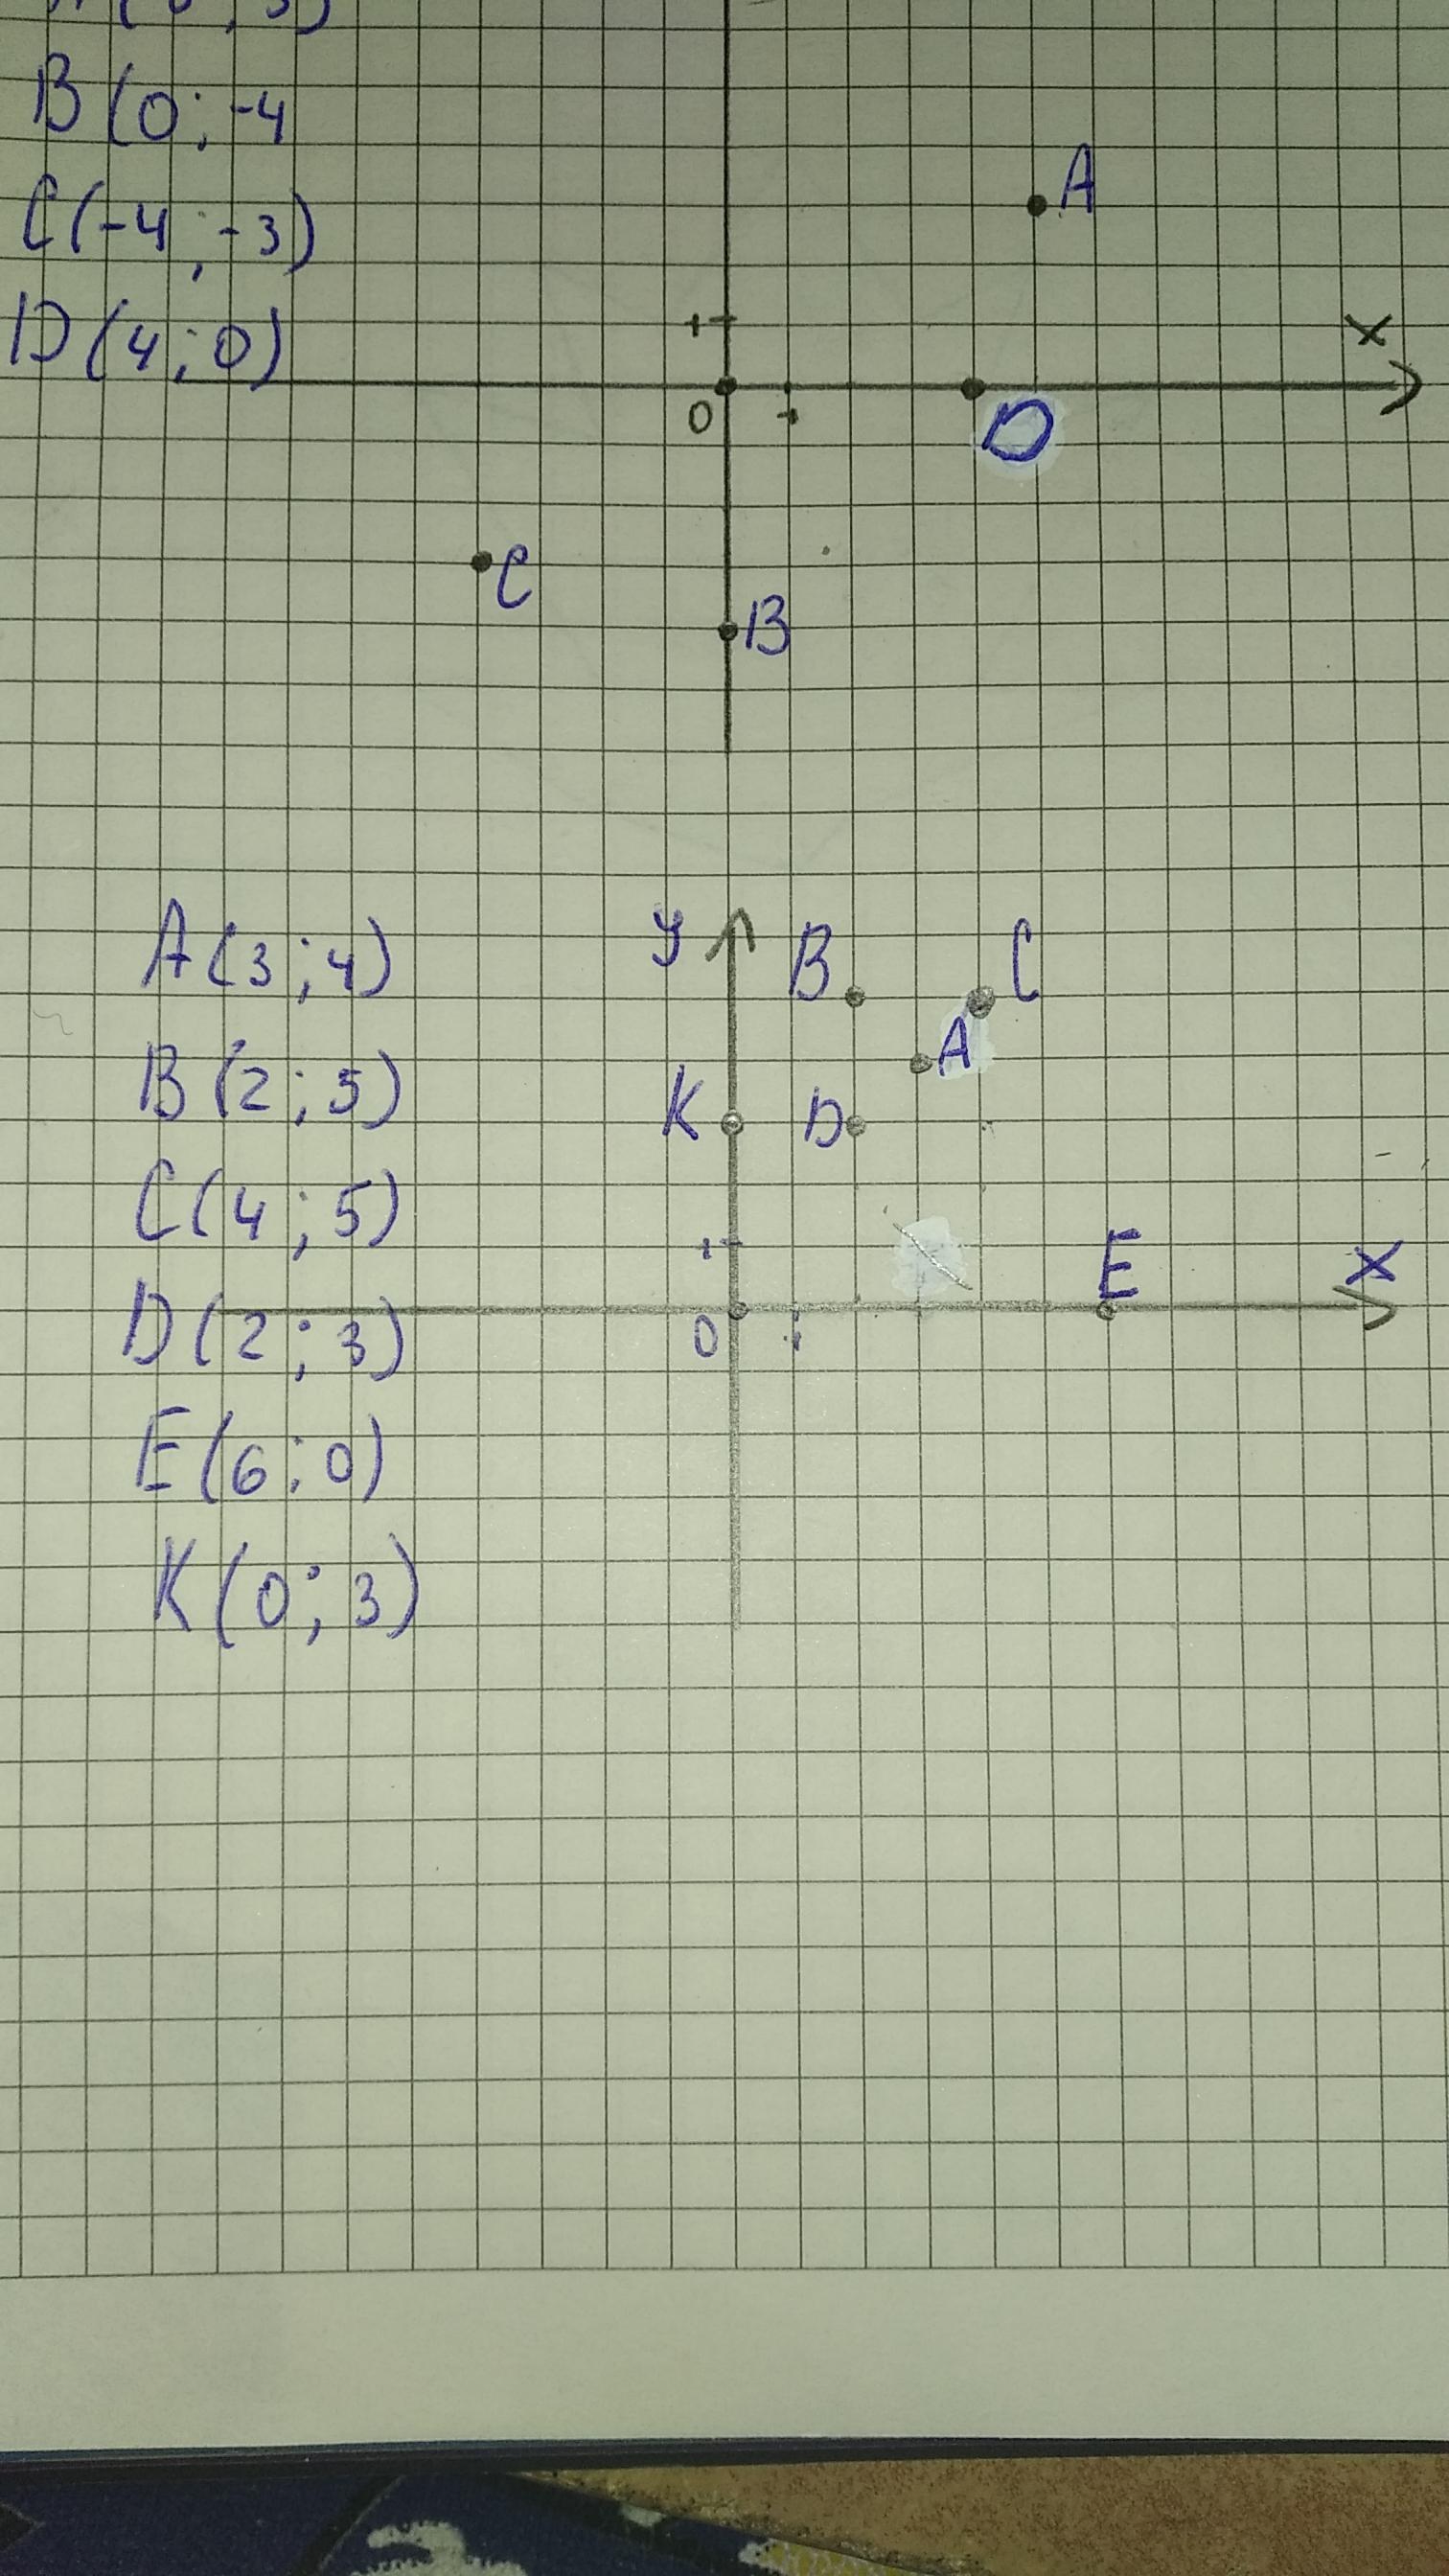 B(0;-4
C(-4;-3)
D(4;0)
A
1
x
0
1
D
C
B
A(3;4)
B(2;5)
C(4;5)
D(2;3)
E(6;0)
K(0;3)
y
B
C
A
K
D
1
E
x
0
1